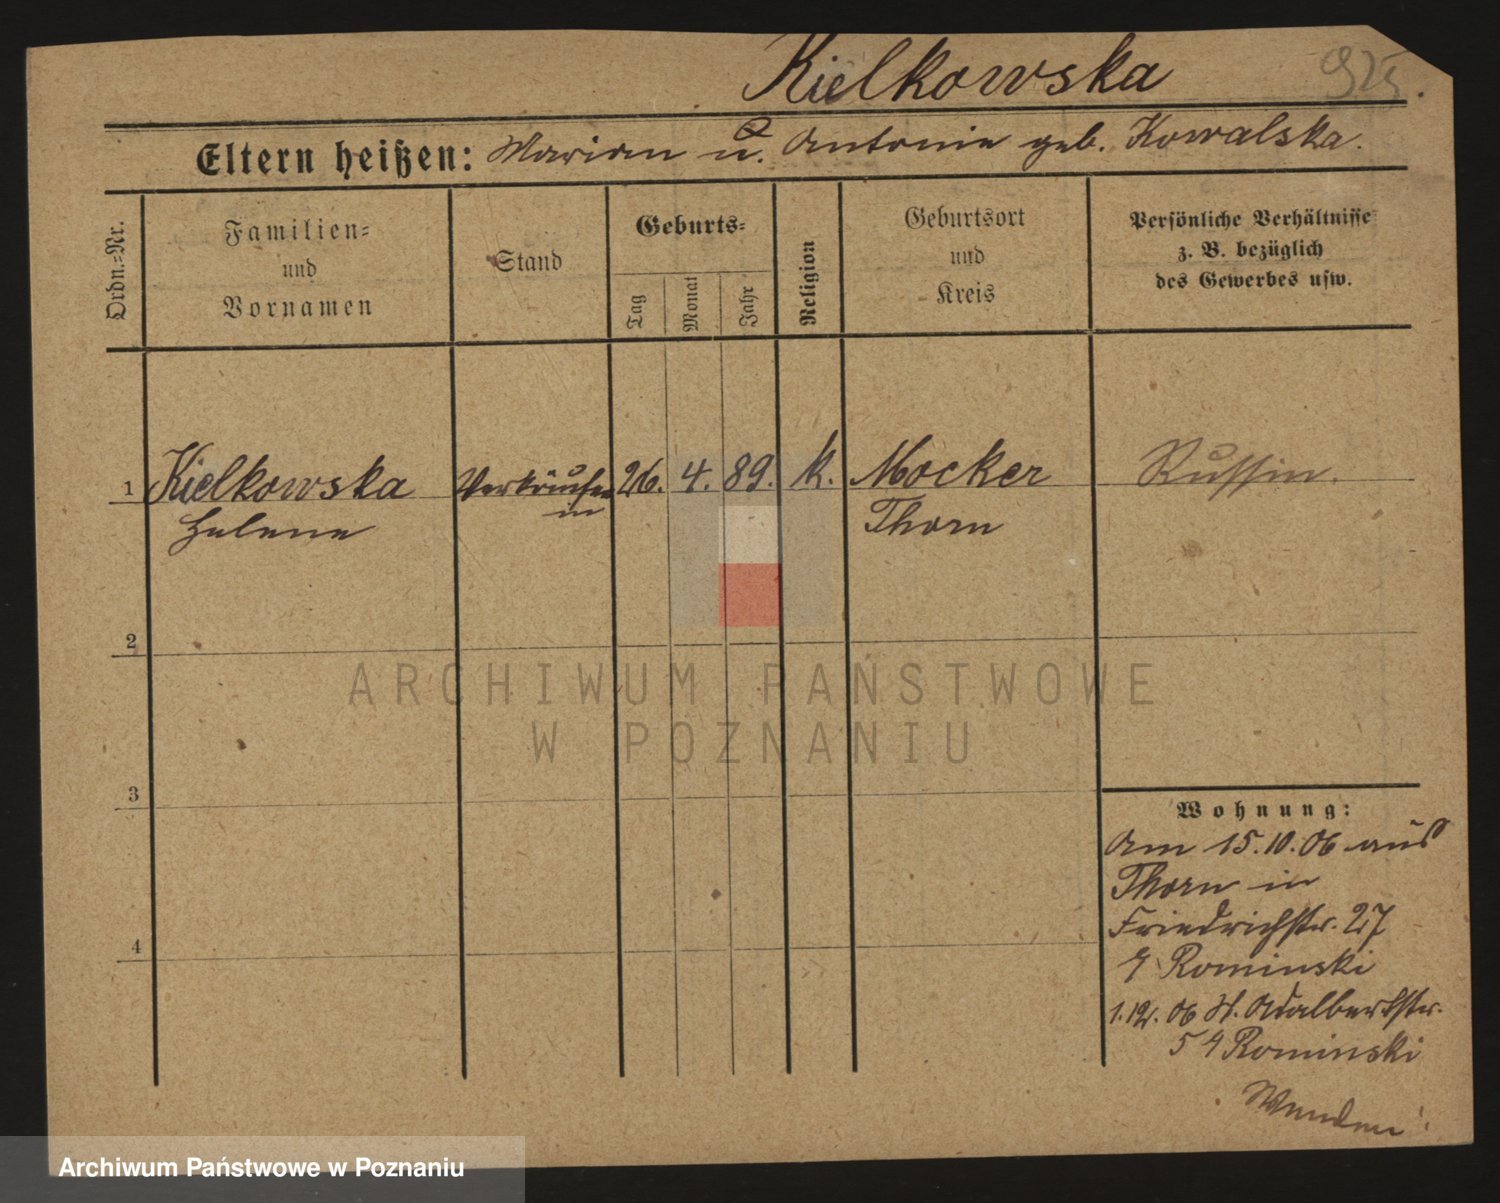 Kielkowska 925.
Eltern heißen: Marian u. Antonie geb. Kowalska.
Ordn.=Nr.
Familien=
und
Vornamen
Stand
Geburts=
Tag
Monat
Jahr
Religion
Geburtsort
und
Kreis
Persönliche Verhältnisse
z. B. bezüglich
des Gewerbes usw.
1 Kielkowska Verkäufer 26. 4. 89. k. Mocker Russin.
Helene in Thorn
2
ARCHIWUM PAŃSTWOWE
W POZNANIU
3
Wohnung:
Am 15.10.06 aus
Thorn in
Friedrichstr. 27
Rominski
4
1.12.06 St. Adalbertstr.
5 Rominski
Wenden!
Archiwum Państwowe w Poznaniu